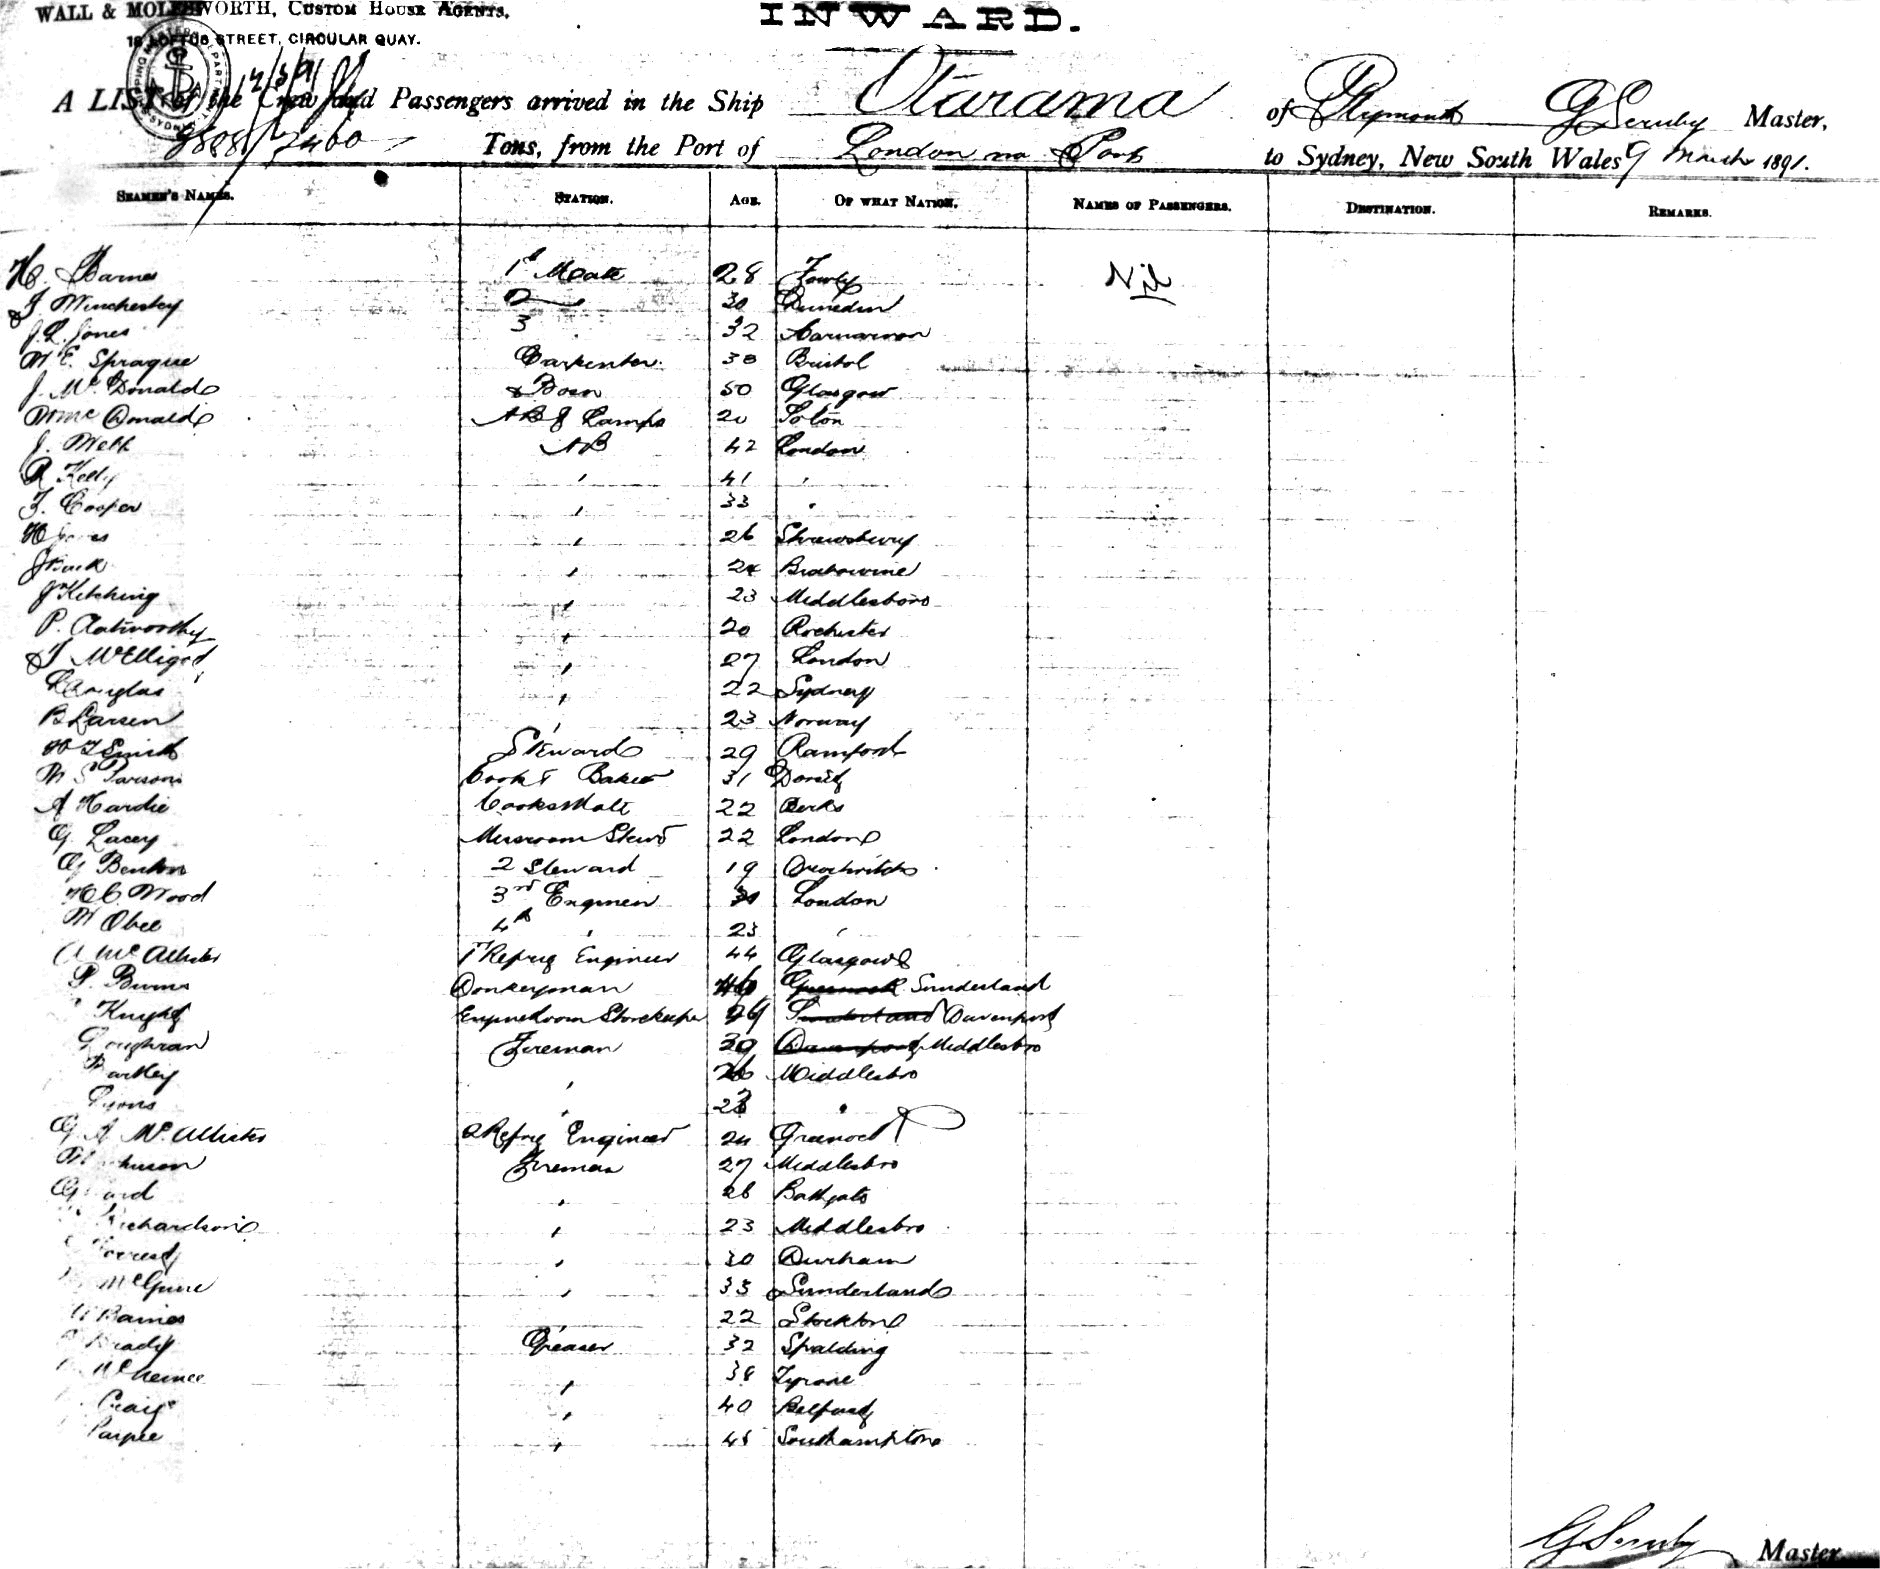 WALL & MOLESWORTH, CUSTOM HOUSE AGENTS,
18 LOFTUS STREET, CIRCULAR QUAY.
INWARD.
12/3/91
A LIST of the Crew and Passengers arrived in the Ship Otarama of Plymouth Master,
3808/2460 Tons, from the Port of London via to Sydney, New South Wales 9 March 1891.
SEAMEN'S NAMES. STATION. AGE. OF WHAT NATION. NAMES OF PASSENGERS. DESTINATION. REMARKS.
H. Barnes 1st Mate 28 Fowey Nil
J Winchester 2 30 Dunedin
J. L. Jones 3 32 Carnarvon
W E. Sprague Carpenter 38 Bristol
J. McDonald Bosn 50 Glasgow
W McDonald AB & Lamps 20 Soton
J. Webb AB 42 London
R Kelly " 41 "
F. Cooper " 33 "
H Jones " 26 Shrewsbury
J Back " 24
J Kitching " 23 Middlesboro
P. " 20 Rochester
J McElligot " 27 London
Douglas " 22 Sydney
B Larsen " 23 Norway
W F Smith Steward 29 Romford
W S Parsons Cook & Baker 31 Dorset
A Hardie Cooks Mate 22 Berks
G. Lacey Messroom Stewd 22 London
G Benton 2 Steward 19
H C. Wood 3rd Engineer London
W Obee 4th " 23 "
A McAllister 1st Refrig Engineer 44 Glasgow
P. Burns Donkeyman Greenock Sunderland
Knight Engineroom Storekeeper Sunderland Davenport
Loughran Fireman 39 Davenport Middlesbro
Bartley " 26 Middlesbro
Lyons " "
G A McAllister 2 Refrig Engineer 24 Greenock
Fireman 27 Middlesbro
" 26 Bathgate
Richardson " 23 Middlesbro
Forrest " 30 Durham
McGuire " 33 Sunderland
Baines " 22 Stockton
Brady Greaser 32 Spalding
" 38 Tyrone
Craig " 40 Belfast
" 45 Southampton
Master